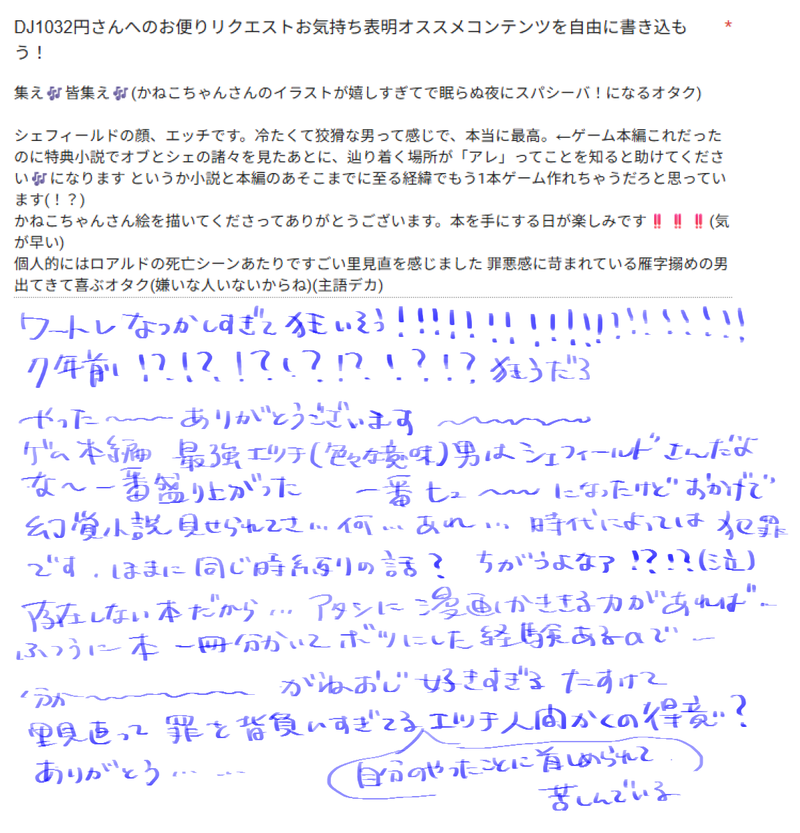 DJ1032円さんへのお便りリクエストお気持ち表明オススメコンテンツを自由に書き込も *
う！
集え🎶皆集え🎶(かねこちゃんさんのイラストが嬉しすぎてで眠らぬ夜にスパシーバ！になるオタク)
シェフィールドの顔、エッチです。冷たくて狡猾な男って感じで、本当に最高。←ゲーム本編これだった
のに特典小説でオブとシェの諸々を見たあとに、辿り着く場所が「アレ」ってことを知ると助けてくださ
い🎶になります というか小説と本編のあそこまでに至る経緯でもう1本ゲーム作れちゃうだろと思ってい
ます(！？)
かねこちゃんさん絵を描いてくださってありがとうございます。本を手にする日が楽しみです‼️‼️‼️(気
が早い)
個人的にはロアルドの死亡シーンあたりですごい里見直を感じました 罪悪感に苛まれている雁字搦めの男
出てきて喜ぶオタク(嫌いな人いないからね)(主語デカ)
ワートレなつかしすぎて狂いそう!!!!!!!!!!!!!!!!!!
7年前!?!?!?!?!?!?!? 狂うだろ
やった〜〜〜ありがとうございます 〜〜〜〜〜
ゲーム本編 最強エッチ(色々な意味)男はシェフィールドさんだよ
な〜一番盛り上がった 一番 〜〜〜 になったけど おかげで
幻覚小説見せられてさ…何…あれ… 時代によっては犯罪
です．ほまに同じ時系列の話？ ちがうよなァ!?!?(泣)
存在しない本だから… アタシに漫画かききる力があれば…
ふつうに本一冊分かいてボツにした経験あるので…
分か〜〜〜〜〜〜 がねおじ好きすぎる たすけて
里見直って罪を背負いすぎてるエッチ人間かくの得意？
ありがとう… … 自分のやったことに首しめられて
苦しんでいる